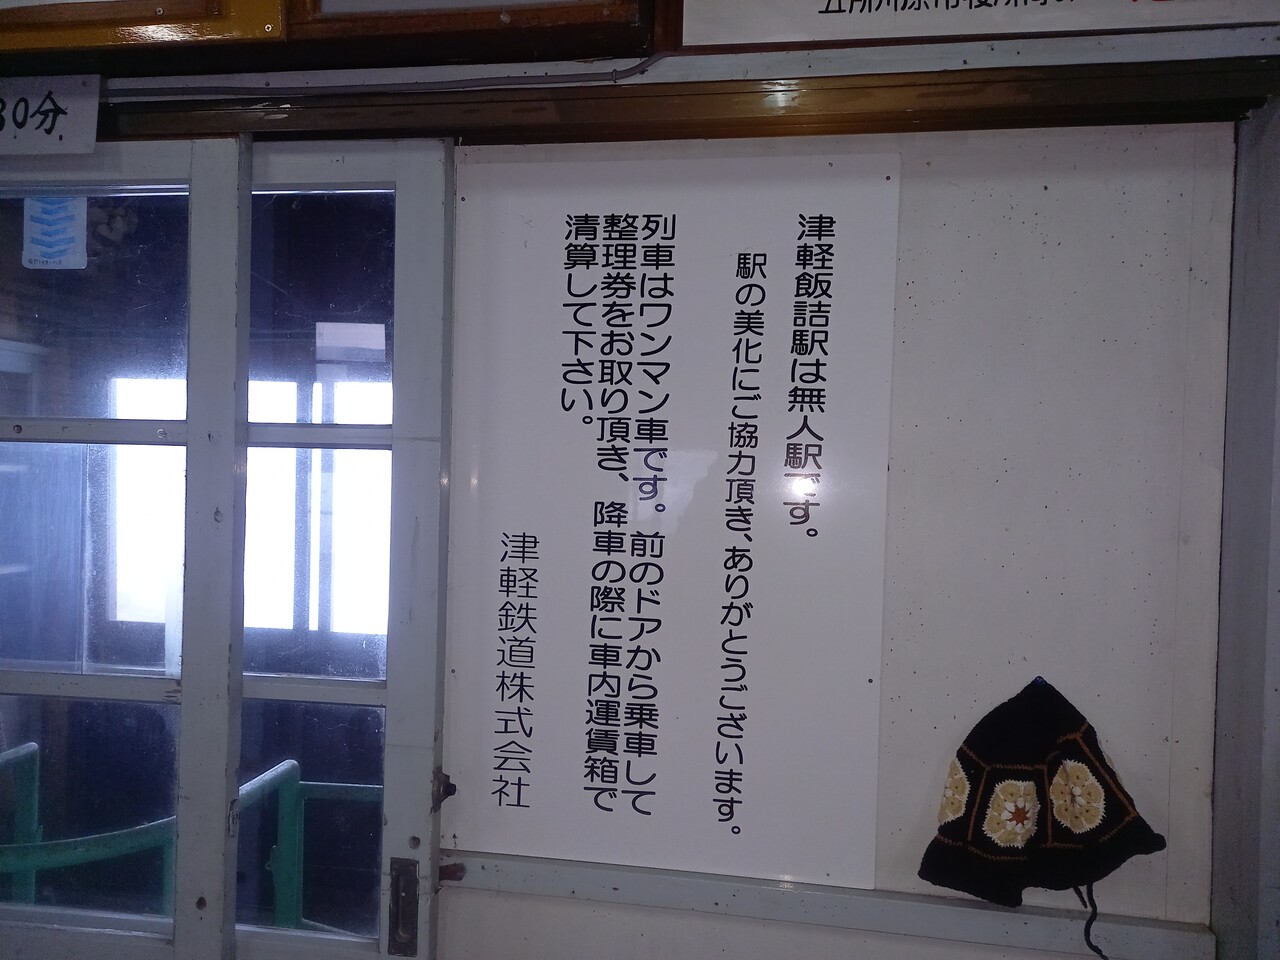 津軽飯詰駅は無人駅です。
駅の美化にご協力頂き、ありがとうございます。
列車はワンマン車です。前のドアから乗車して
整理券をお取り頂き、降車の際に車内運賃箱で
清算して下さい。
津軽鉄道株式会社
30分